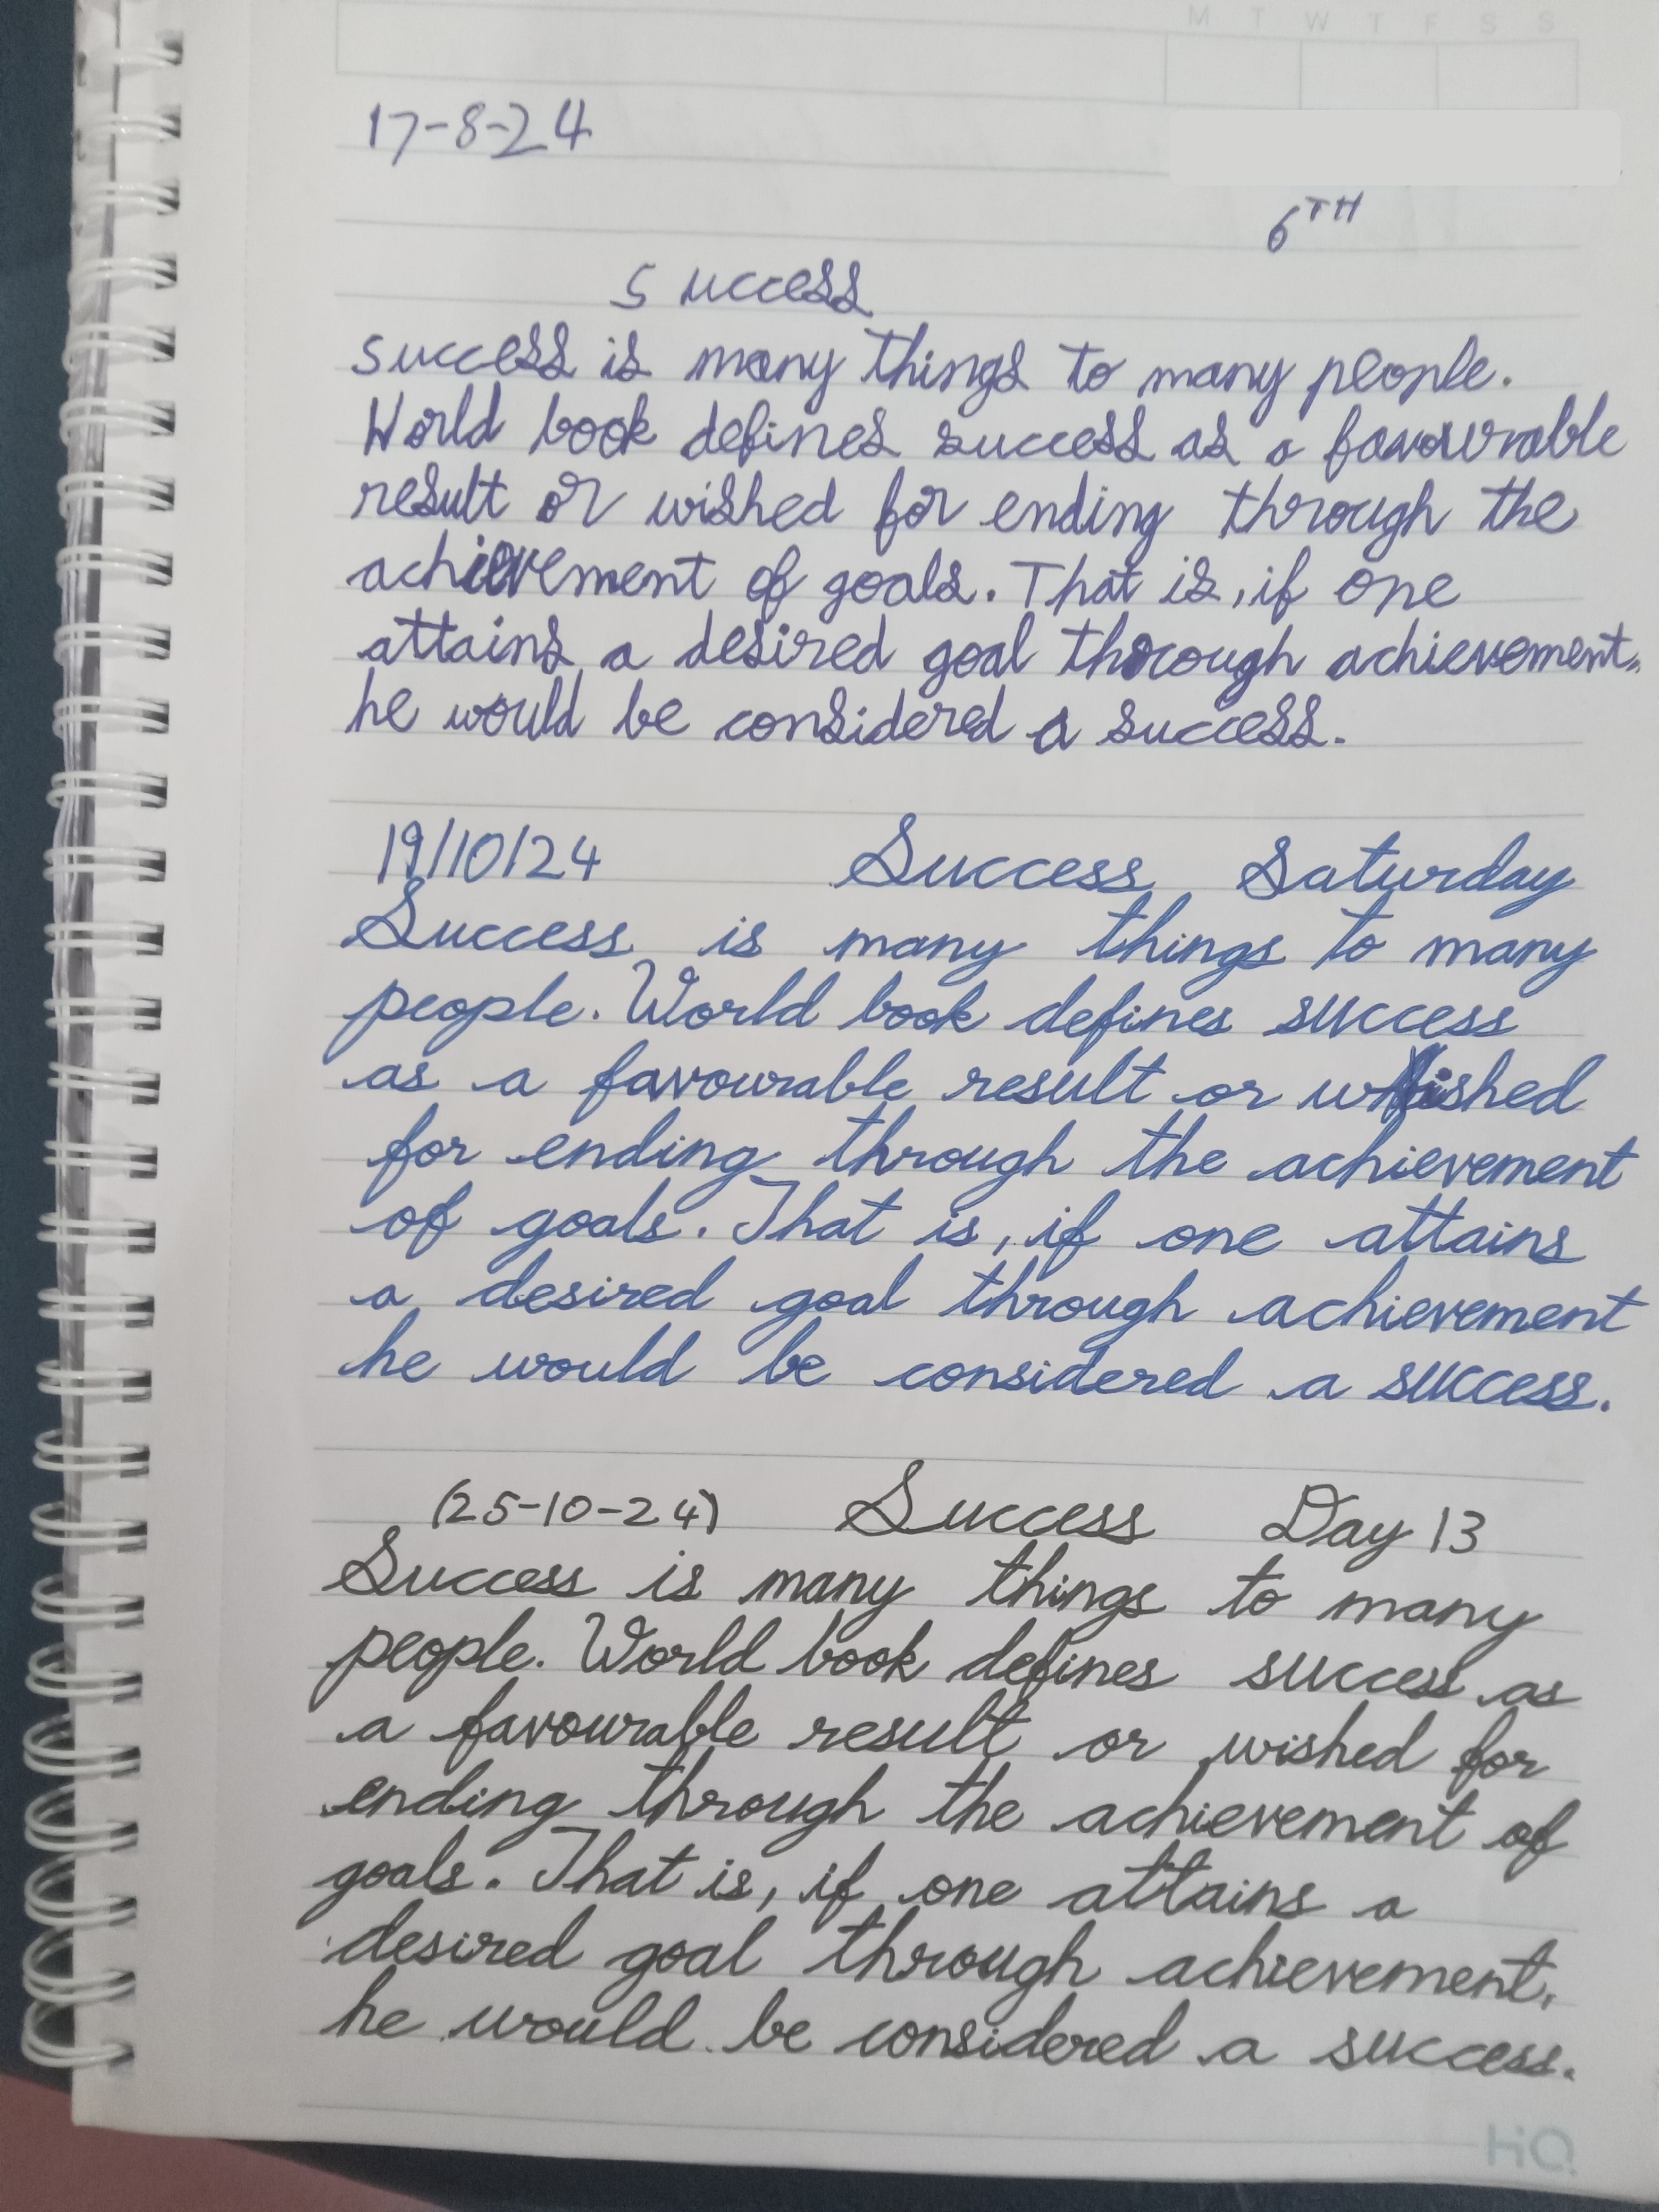 M T W T F S S
17-8-24
6TH
Success
Success is many things to many people.
World book defines success as a favourable
result or wished for ending through the
achievement of goals. That is, if one
attains a desired goal thorough achievement,
he would be considered a success.
19/10/24 Success Saturday
Success is many things to many
people. World book defines success
as a favourable result or wished
for ending through the achievement
of goals. That is, if one attains
a desired goal through achievement
he would be considered a success.
(25-10-24) Success Day 13
Success is many things to many
people. World book defines success as
a favourable result or wished for
ending through the achievement of
goals. That is, if one attains a
desired goal through achievement,
he would be considered a success.
HiQ